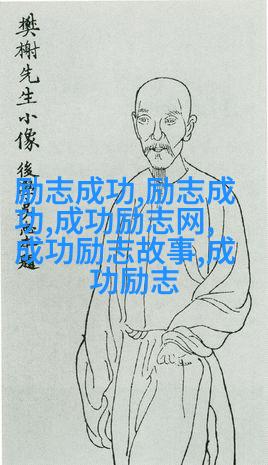 樊榭先生小像
後學
題
励志成功,励志成
功,成功励志网,
成功励志故事,成
功励志